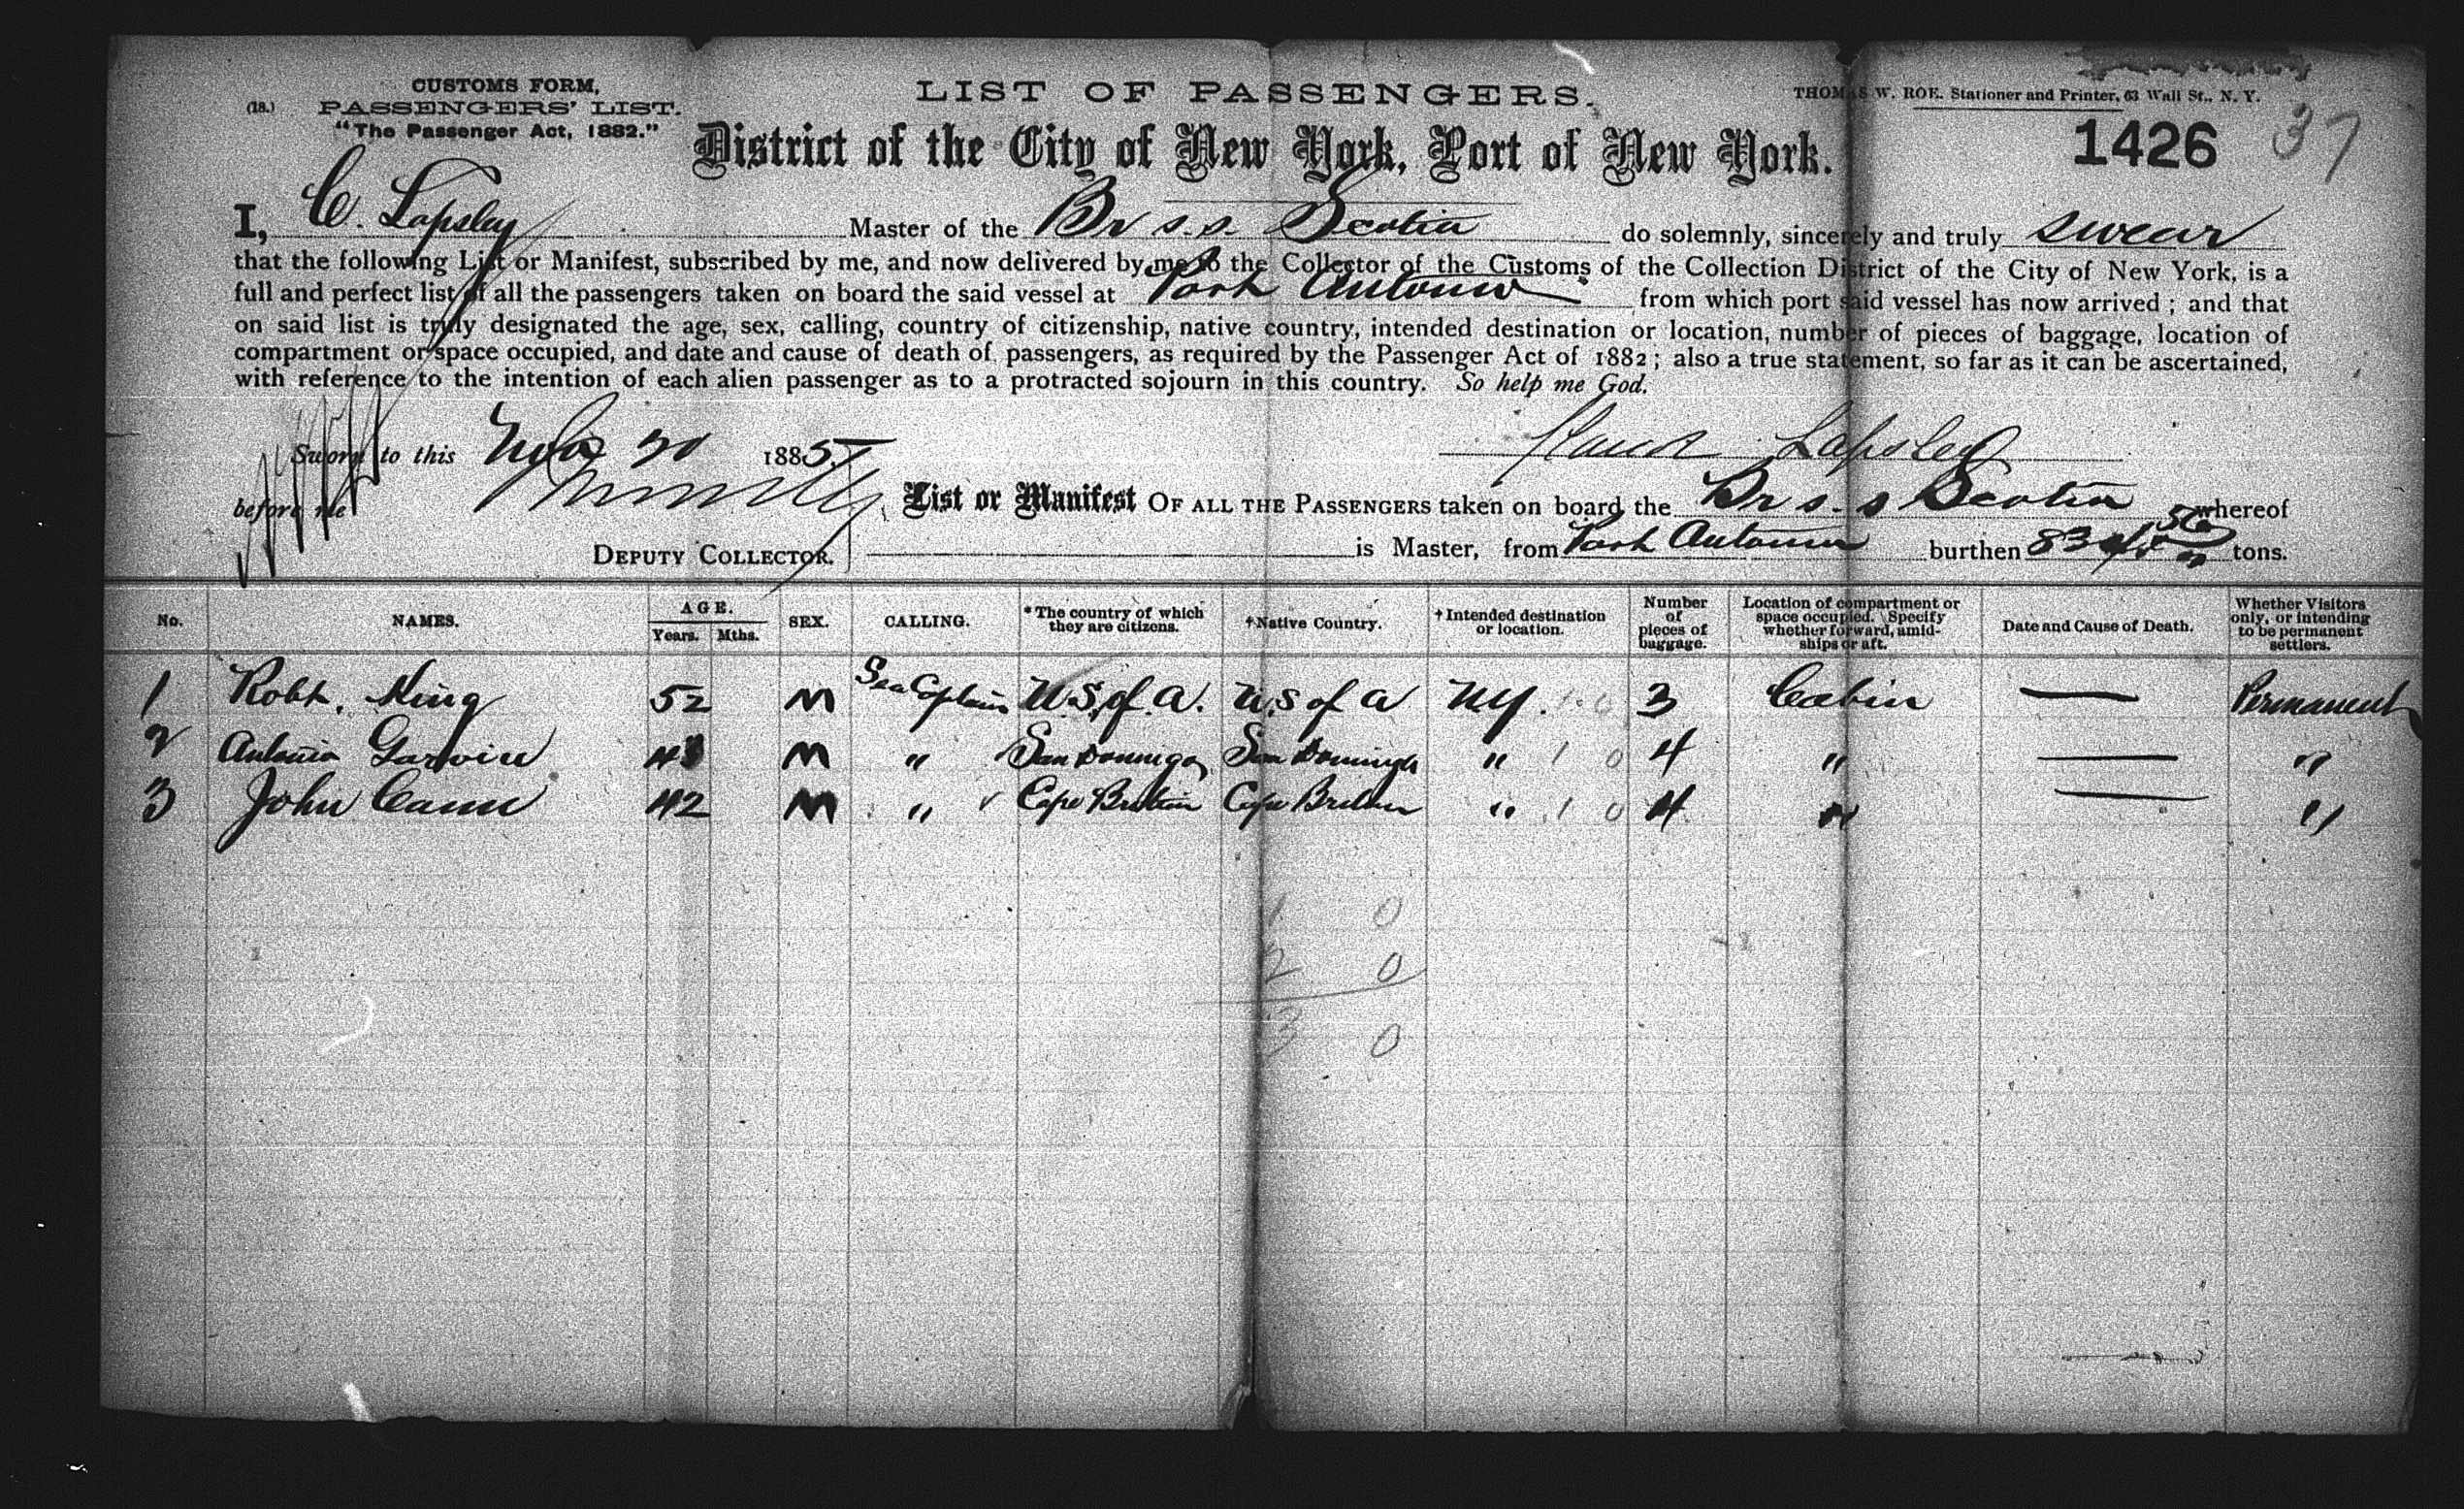 (18.)
CUSTOMS FORM,
PASSENGERS' LIST.
"The Passenger Act, 1882."
LIST OF PASSENGERS.
THOMAS W. ROE. Stationer and Printer, 63 Wall St., N. Y.
District of the City of New York, Port of New York.
1426 37
I, C. Lapsley Master of the Br s.s. Scotia do solemnly, sincerely and truly swear
that the following List or Manifest, subscribed by me, and now delivered by me to the Collector of the Customs of the Collection District of the City of New York, is a
full and perfect list of all the passengers taken on board the said vessel at Port Antonio from which port said vessel has now arrived; and that
on said list is truly designated the age, sex, calling, country of citizenship, native country, intended destination or location, number of pieces of baggage, location of
compartment or space occupied, and date and cause of death of passengers, as required by the Passenger Act of 1882; also a true statement, so far as it can be ascertained,
with reference to the intention of each alien passenger as to a protracted sojourn in this country. So help me God.
Sworn to this 1885
Lapsley
before me
DEPUTY COLLECTOR.
List or Manifest OF ALL THE PASSENGERS taken on board the Br s.s Scotia whereof
is Master, from Port Antonio burthen tons.
No. NAMES. AGE. Years. Mths. SEX. CALLING. *The country of which they are citizens. †Native Country. †Intended destination or location. Number of pieces of baggage. Location of compartment or space occupied. Specify whether forward, amidships or aft. Date and Cause of Death. Whether Visitors only, or intending to be permanent settlers.
1 Robt. King 52 M Sea Captain U.S. of A. U.S of A NY. 1 0 3 Cabin — Permanent
2 Antonio M " San Domingo San Domingo " 1 0 4 " — "
3 John Cann 42 M " Cape Breton Cape Breton " 1 0 4 " — "
1 0
2 0
3 0